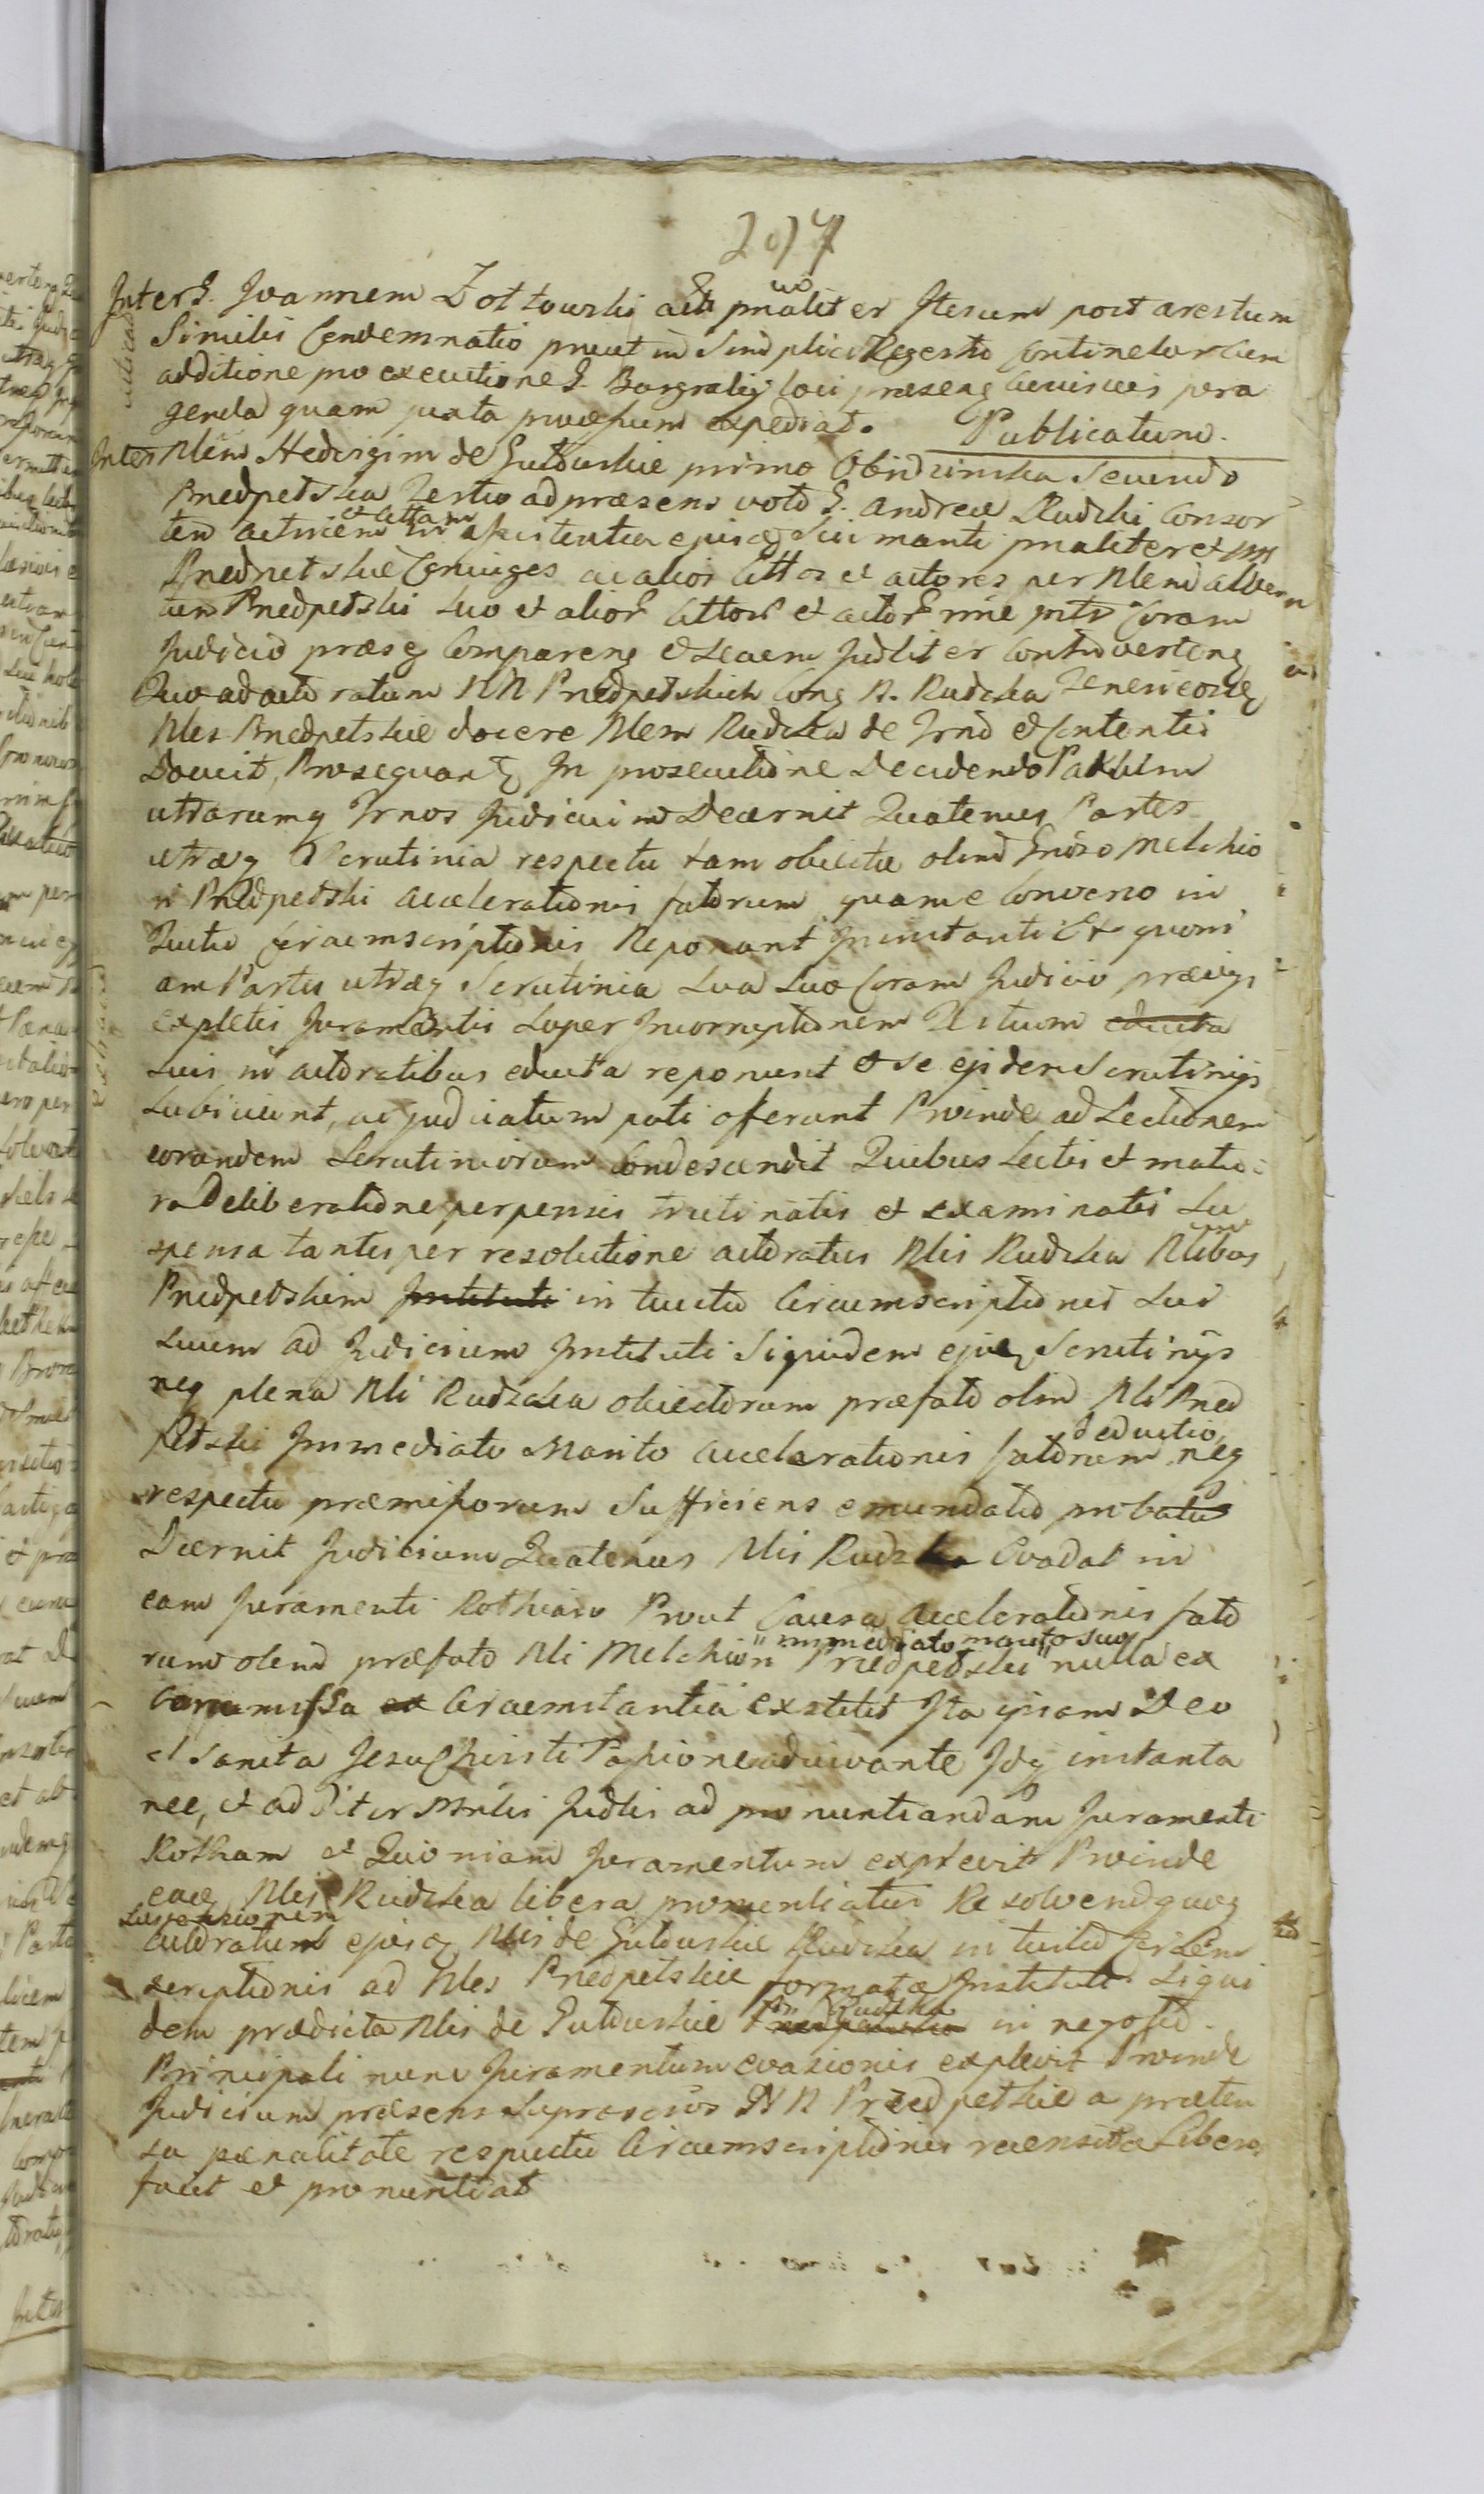 207
Inter G. Joannem Zottowski act pnaliter Iterum post arestum
Similis Condemnatio prout in Simplici Regestro Continetur cum
additione pro executione G. Burgrabij loci præsens cuiusvis pera
genda quam juxta præsum expediat. Publicatum.
Inter Nlem Hedvigim de Gutowskie primo Obidzinska Secundo
Przedpelska Tertio ad præsens voto G. Andreæ Rudzki Consor
tem actricem et Cittam in assistentia ejusq Sui mariti pnaliter et
Przedpelskie Conjuges ac alios Cittos et actores per Nlem Alber
tum Przedpelski suo et alior Cittor et actor nne Coram
Judicio præs Comparen et secum Judliter Controverten
Quo ad actoratum NN Przedpelskich Cong N. Rudzka
Nles Przedpelskie docere Nlem Rudzka de Trnd et Contentis
Docuit, Prosequant In prosecutione Decidendo Partium
utrarumq Trnos Judicium Decernit Quatenus Partes
utræq Scrutinia respectu tam obiectæ olim Gnoso Melchio
ri Przedpelski accelerationis fatorum quam e Converso in
tuitu Circumscriptionis Reponant In instanti Et quoni
am Partes utræq Scrutinia Sua Suo Coram Judicio prævijs
expletis Juramentis Super Incorruptionem Testium educta
suis in actoratibus educta reponunt et se ejsdem Scrutinijs
Subiiciunt, ac judicatum pati offerunt Proinde ad Lectionem
eorundem Scrutiniorum Condescendit Quibus Lectis et matu
ra Deliberatione perpensis trutinatis et examinatis Su
spensa tantisper resolutione actoratus Nlis Rudzka Nlibus
Przedpelskim Instituti in tuitu Circumscriptionis Sui
Suum ad Judicium Instituti Siquidem ejus Scrutinijs
neq plena Nli Rudzka obiectorum præfato olim Nli Przed
pelski Immediato Marito accelerationis fatorum deductio, neq
respectu præmissorum Sufficiens emundatio probatus
Decernit Judicium Quatenus Nlis Rudzka Evadat in
eam Juramenti Rotham Prout Causa accelerationis fato
rum olim præfato Nli Melchiori Przedpelski immediato marito suo nulla ex
Commissa ex Circumstantia extitit Ita ipsam Deo
et Sancta Jesu Christi Passione adiuvante Idq instanta
nee, et additur Mnlis Judlis ad pronuntiandam Juramenti
Rotham et Quoniam Juramentum explevit Proinde
eaq Nlis Rudzka libera pronuntiatur Resolvendquoq
Suspensionem
actoratum ejusq Nlis de Gutowskie Rudzka in tuitu Circum
scriptionis ad Nles Przedpelskie formatæ Instituti Siqui
dem prædicta Nlis de Gutowskie Przedpelska Rudzka in negotio
Principali nunc Juramentum evasionis explevit Proinde
Judicium præsens Supra NN Przedpelskie a præten
sa pænalitate respectu Circumscriptionis recensita Liberos
facit et pronuntiat